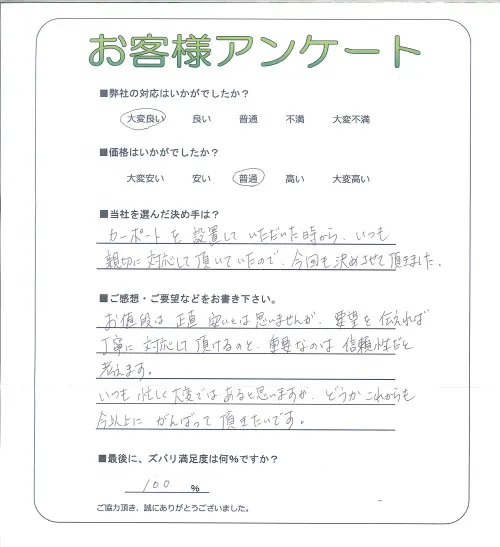 お客様アンケート
■弊社の対応はいかがでしたか？
大変良い 良い 普通 不満 大変不満
■価格はいかがでしたか？
大変安い 安い 普通 高い 大変高い
■当社を選んだ決め手は？
カーポートを設置していただいた時から、いつも
親切に対応して頂いていたので、今回も決めさせて頂きました。
■ご感想・ご要望などをお書き下さい。
お値段は正直安いとは思いませんが、要望を伝えれば
丁寧に対応して頂けるのと、重要なのは信頼性だと
考えます。
いつも忙しく大変ではあると思いますが、どうかこれからも
今以上にがんばって頂きたいです。
■最後に、ズバリ満足度は何％ですか？
100 %
ご協力頂き、誠にありがとうございました。